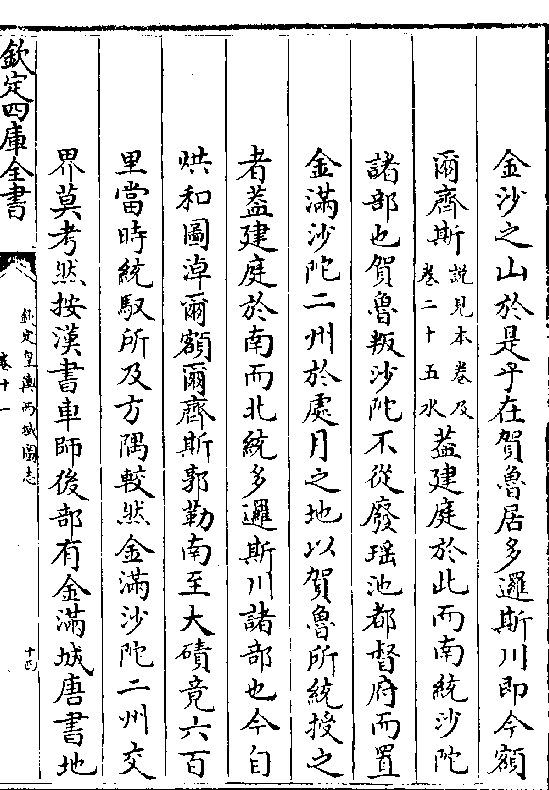 金沙之山於是乎在賀魯居多邏斯川即今額
爾齊斯說見本卷及卷二十五水葢建庭於此而南統沙陀
諸部也賀魯叛沙陀不從廢瑶池都督府而置
金滿沙陀二州於處月之地以賀魯所統授之
者葢建庭於南而北統多邏斯川諸部也今自
烘和圖淖爾額爾齊斯郭勒南至大磧竟六百
里當時統馭所及方隅較然金滿沙陀二州交
界莫考然按漢書車師後部有金滿城唐書地
欽定四庫全書
欽定皇輿西域圖志
卷十一
十四